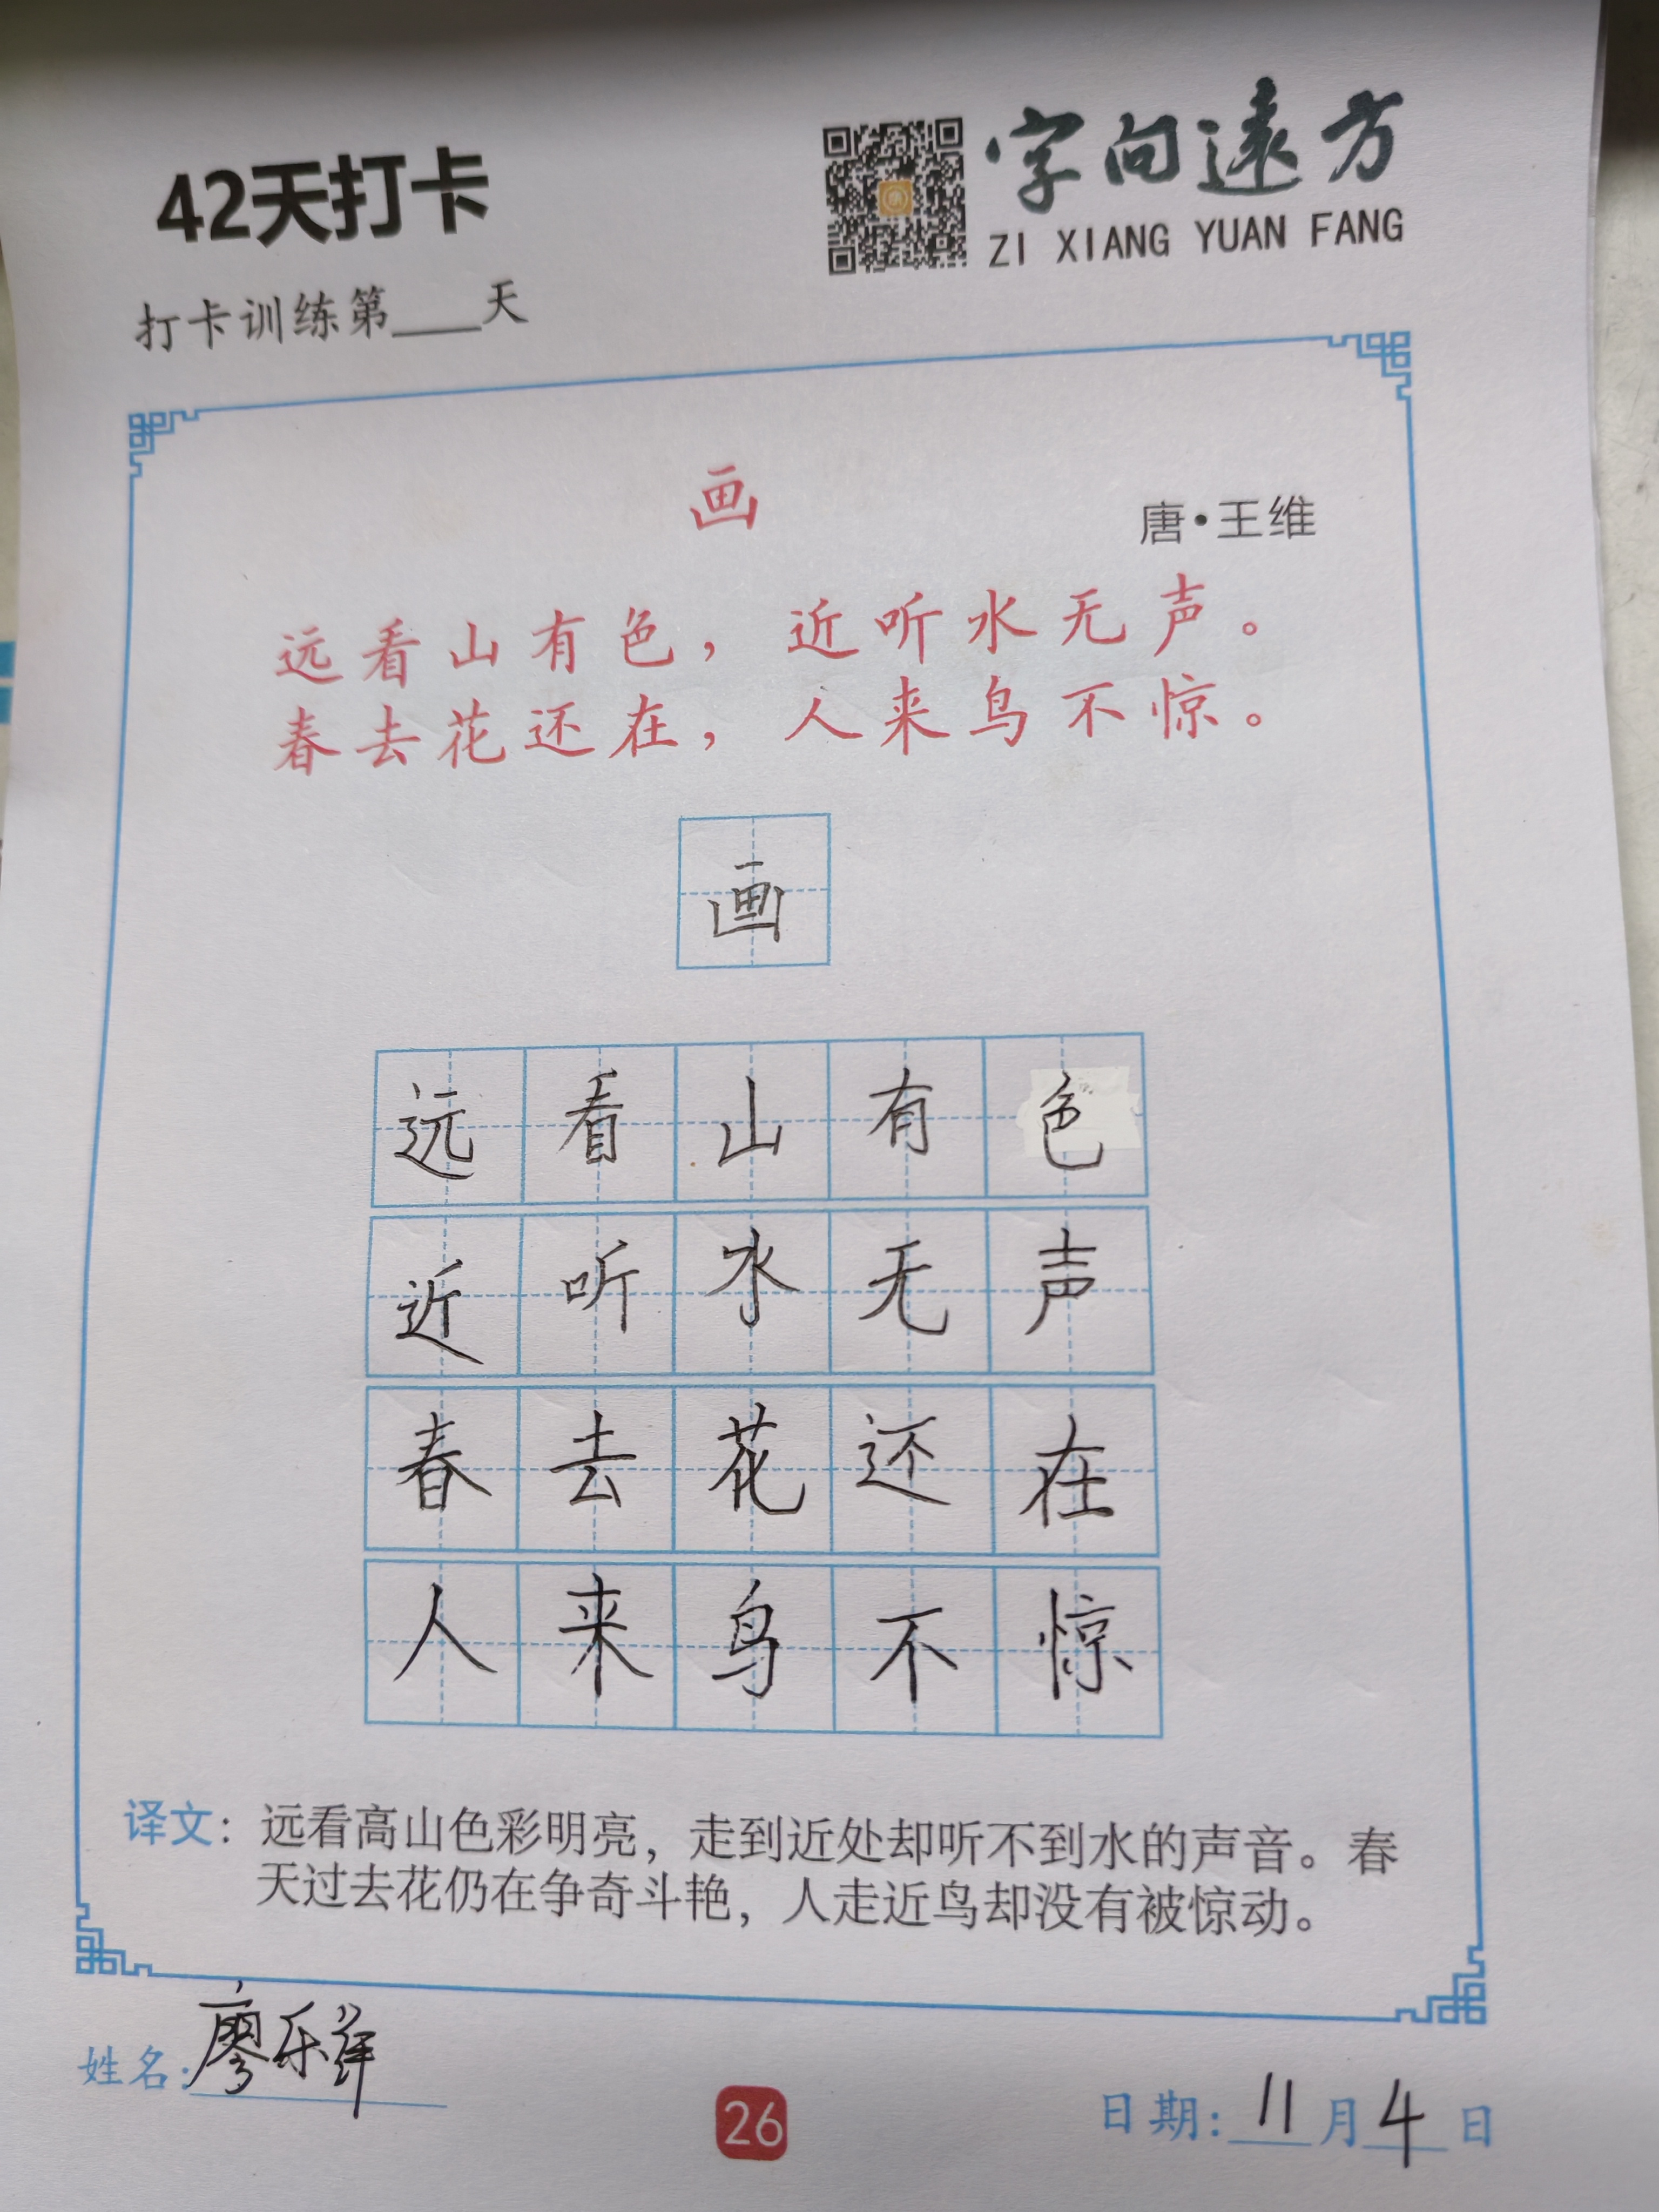 42天打卡
字向遠方
ZI XIANG YUAN FANG
打卡训练第____天
画
唐·王维
远看山有色，近听水无声。
春去花还在，人来鸟不惊。
画
远看山有色
近听水无声
春去花还在
人来鸟不惊
译文：远看高山色彩明亮，走到近处却听不到水的声音。春
天过去花仍在争奇斗艳，人走近鸟却没有被惊动。
姓名：廖乐
26
日期：11月4日